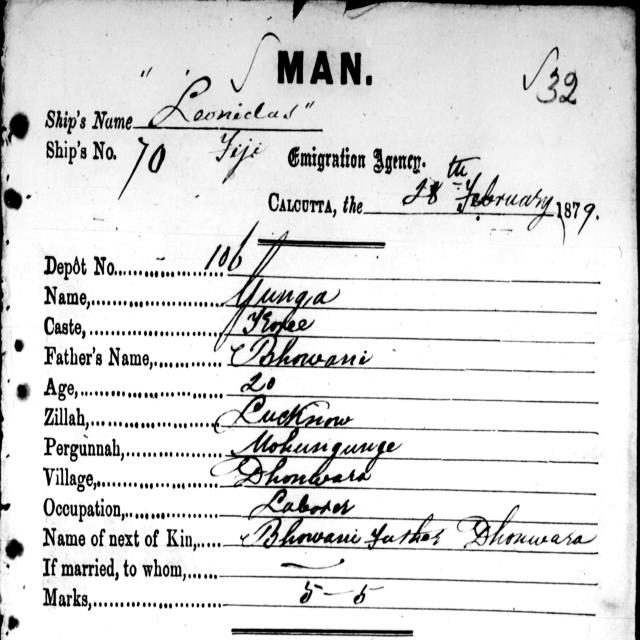 MAN.
32
Ship's Name "Leonidas"
Ship's No. 70 Fiji Emigration Agency.
CALCUTTA, the 28th February 1879.
Depôt No. 106
Name, Gunga
Caste, Koree
Father's Name, Bhowani
Age, 20
Zillah, Lucknow
Pergunnah, Mohungunge
Village, Dhonwara
Occupation, Laborer
Name of next of Kin, Bhowani father Dhonwara
If married, to whom, —
Marks, 5-5